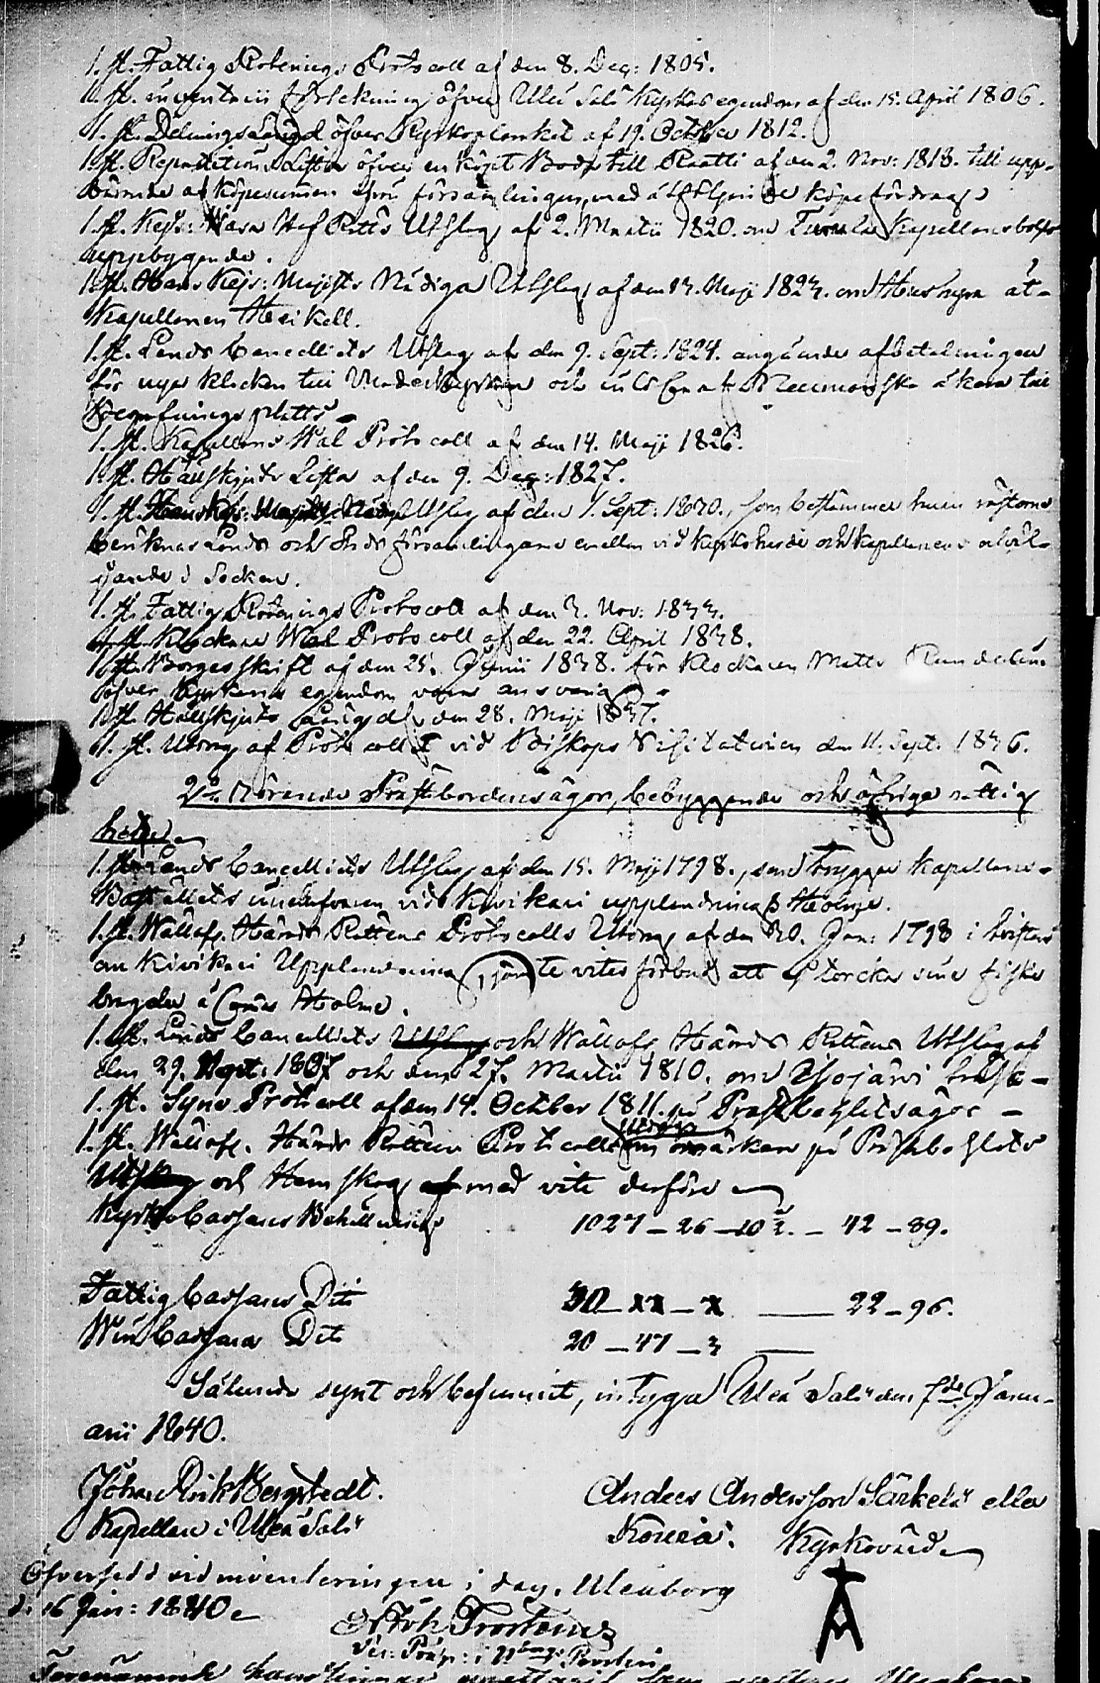 1. st. Fattig Rotenings Protocoll af den 8. Dec: 1805.
1. st. inventarii förtekning öfver Uleå Salo Kyrkas egendom af den 15. April 1806.
1. st. Delnings Längd öfver Kyrkoplanket af 19. October 1812.
1. st. Repartitions Lista öfver en köpt Bod till af den 2. Nov: 1818. till upp-
bärande af köpesumman ifrån församlingen, med åtföljande köpefördrag
1. st. Kejs: Wasa Hof Rätts Utslag af 2. Martii 1820. om Kapellansbols
uppebyggande.
1. st. Hans Kejs: Majsts Nådiga Utslag af den 13. Maji 1823. om Hushyra åt
Kapellanen Heikell.
1. st. Lands Cancelliets Utslag af den 9. Sept: 1824. angående afbetalningen
för nya klockan till Moderkyrkan och af åkern till
Begrafnings platts
1. st. Kapellans Wal Protocoll af den 14. Maji 1826.
1. st. Hållskjuts Lista af den 9. Dec: 1827.
1. st. Utslag af den 1. Sept: 1830., som bestämmer huru rösterne
beräknas Lands och Stads församlingarne emellan vid kyrkoherde och kapellanens utväl-
jande i Socken.
1. st. Fattig Rotenings Protocoll af den 3. Nov: 1833.
1. st. Klockare Wal Protocoll af den 22. April 1838.
1. st. Borgesskrift af den 25. Junii 1838. för Klockaren Matts
öfver Kyrkans egendom vara ansvarig
1. st. Hållskjuts Längd af den 28. Maji 1837.
1. st. Utdrag af Protocollet vid Biskops Visitationen den 11. Sept: 1836.
2:o Rörande Prästbordens ägor, bebyggande och öfrige rättig
heter
1. st. Lands Cancelliets Utslag af den 15. Maji 1798., som trygger Kapellans
Boställets innehafvaren vid Kivikari upplandnings Holme.
1. st. Wällofl. Härads Rättens Protocolls Utdrag af den 30. Jan: 1798 i tvisten
om Kivikari Upplandning jämte vites förbud att torcka sina fiske
bragder å samma Holme.
1. st. Lands Cancelliets och Wällofl. Härads Rättens Utslag af
den 29. 1807 och den 27. Martii 1810. om träsk
1. st. Syns Protocoll af den 14. October 1811. på Prästbohlets ägor
1. st. Wällofl. Härads Rättens Protocolls utdrag om åverkan på Prästbohlets
och Hemskog med vite derföre
Kyrko Cassans Behållning 1027 – 26 – 10 2. – 42 – 89.
Fattig Cassans Dito 30 – 22 – 96.
Win Cassans Dito 20 – 47 – 3
Sålunda synt och befunnit, intygar Uleå Salo den 7de Janu-
arii 1840.
Johan Erik Bergstedt. Anders Andersson Särkelä eller
Kapellan i Uleå Salo Kyrkovärd
Öfversedd vid inventeringen i dag. Uleåborg
d. 16 Jan: 1840
Joh: Frosterus
i Prosteri